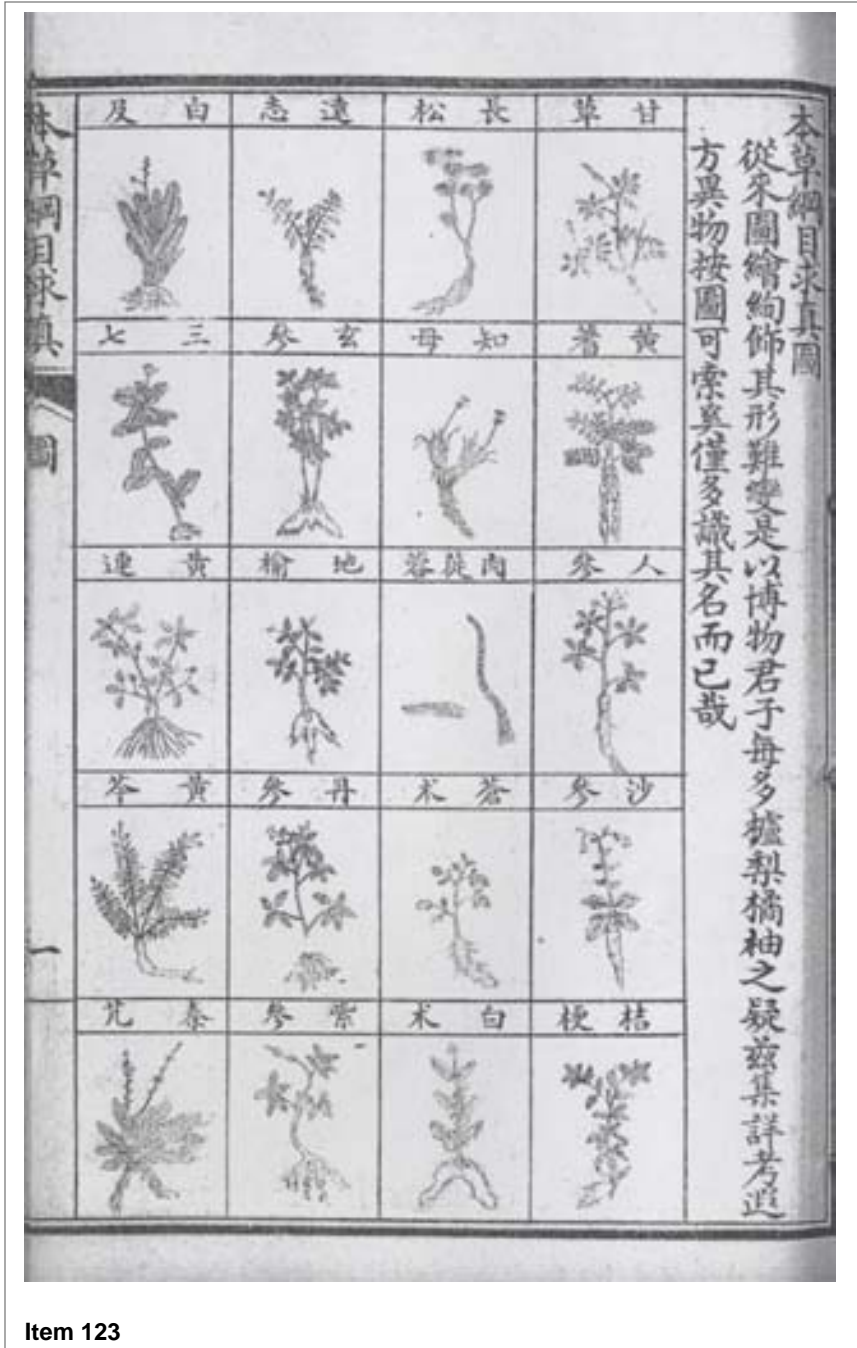 本草綱目求真圖
從來圖繪絢飾其形難變是以博物君子每多樝梨橘柚之疑茲集詳考遐
方異物按圖可索奚僅多識其名而已哉
甘草
長松
遠志
白及
黃蓍
知母
玄參
三七
人參
肉蓯蓉
地榆
黃連
沙參
蒼术
丹參
黃芩
桔梗
白术
紫參
秦艽
本草綱目求真
圖
一
Item 123